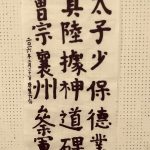 太子少保德業
真陸據神道碑
曾宗襄州參軍